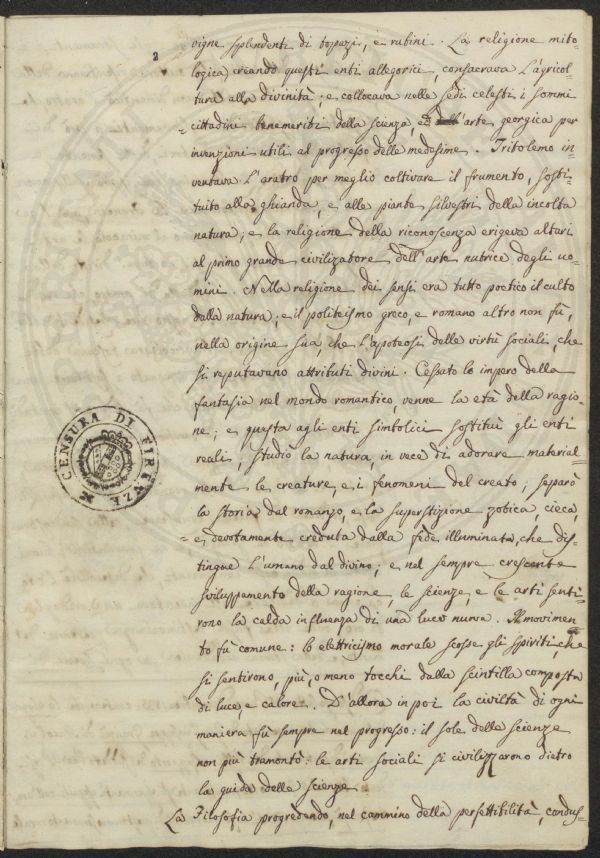 2
vigne splendenti di topazi, e rubini. La religione mito-
logica creando questi enti allegorici, consacrava l'agricol-
tura alla divinità; e collocava nelle sedi celesti i sommi
= cittadini benemeriti della scienza, ed all'arte georgica per
invenzioni utili al progresso delle medesime. Tritolemo in-
ventava l'aratro per meglio coltivare il frumento, sosti-
tuito alla ghianda, e alle piante silvestri della incolta
natura; e la religione della riconoscenza erigeva altari
al primo grande civilizatore dell'arte nutrice degli uo-
mini. Nella religione dei sensi era tutto poetico il culto
della natura; e il politeismo greco, e romano altro non fù,
nella origine sua, che l'apoteosi delle virtù sociali, che
si reputavano attributi divini. Cessato lo impero della
fantasia nel mondo romantico, venne la età della ragio-
ne; e questa agli enti simbolici sostituì gli enti
reali; studiò la natura, in vece di adorare material-
mente le creature, e i fenomeni del creato; separò
la storia dal romanzo, e la superstizione zotica, cieca,
= e devotamente creduta dalla fede illuminata, che dis-
tingue l'umano dal divino; e nel sempre crescente
sviluppamento della ragione, le scienze, e le arti senti-
rono la calda influenza di una luce nuova. Il movimen-
to fù comune: lo elettricismo morale scosse gli spiriti, che
si sentirono, più, o meno tocchi dalla scintilla composta
di luce, e calore. D'allora in poi la civiltà di ogni
maniera fù sempre nel progresso: il sole delle scienze
non più tramontò: le arti sociali si civilizzarono dietro
la guida delle scienze.
La Filosofia progredendo, nel cammino della perfettibilità, condus-
CENSURA DI FIRENZE